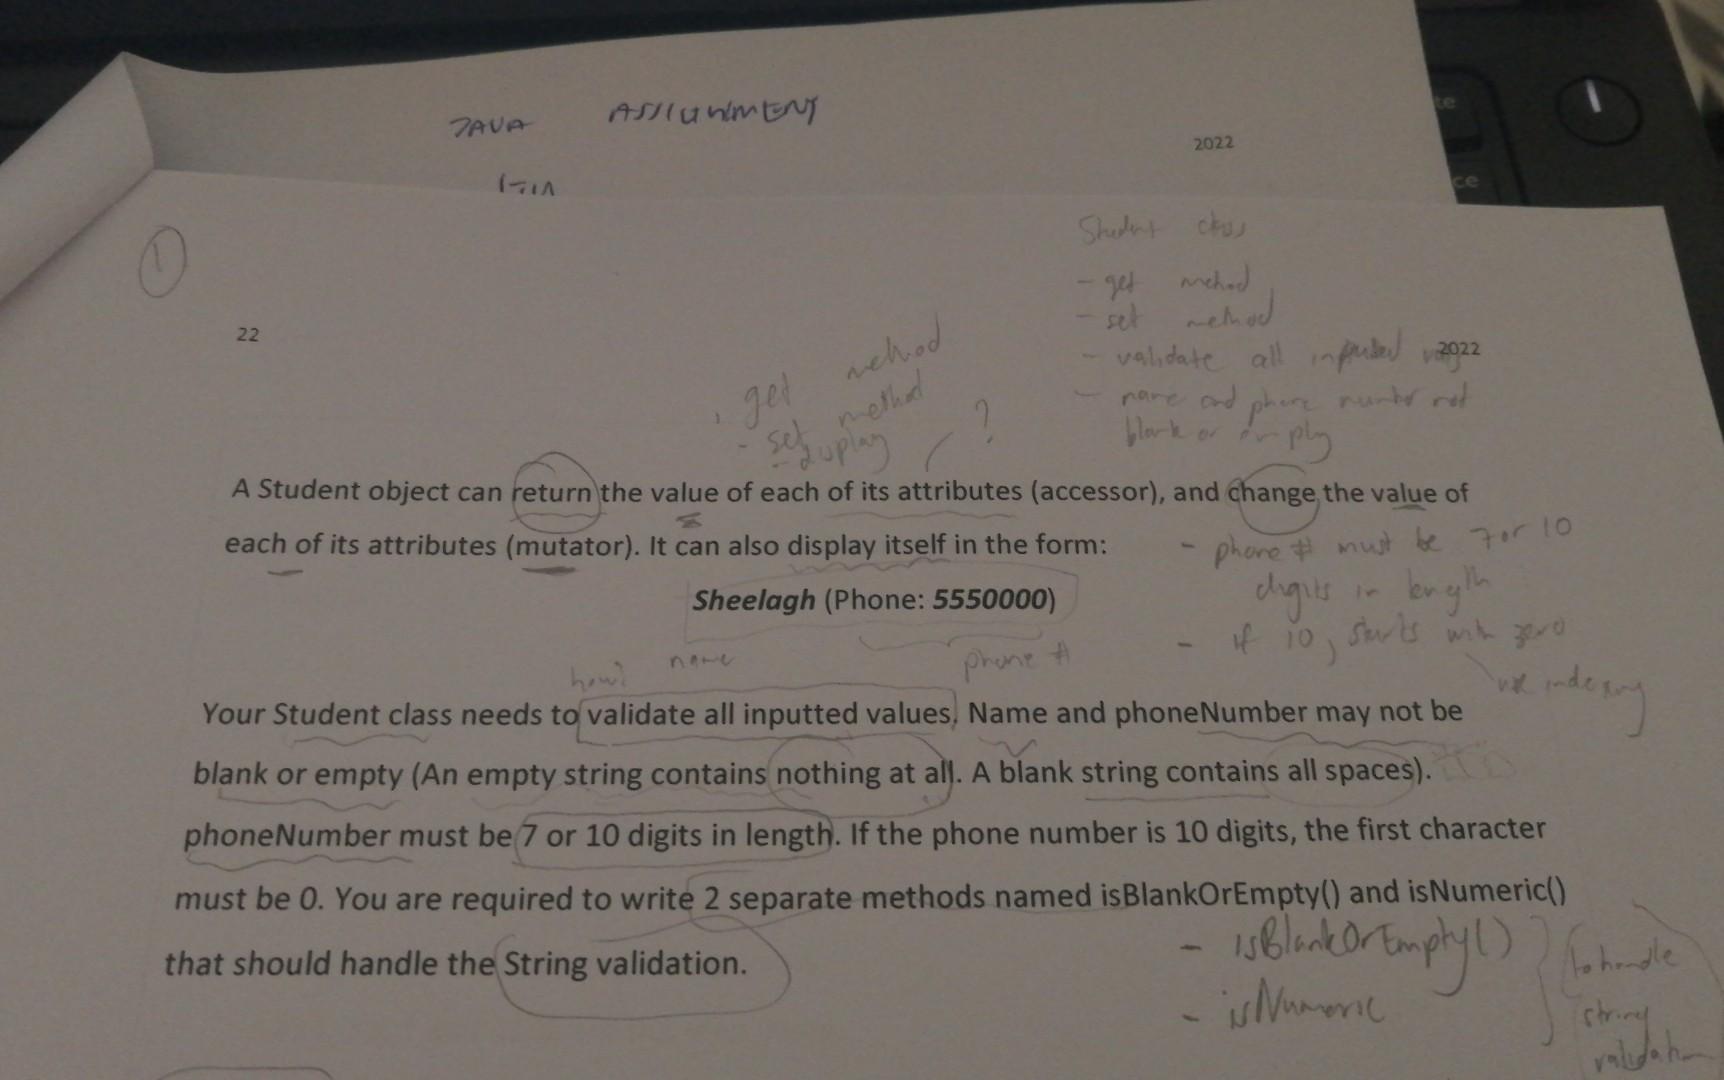 JAVA ASSIGNMENT
2022
te
ce
1
Student class
- get method
- set method
22
- validate all inputted
2022
- name and phone number not
blank or empty
get method
- set method
- display
?
A Student object can return the value of each of its attributes (accessor), and change the value of
each of its attributes (mutator). It can also display itself in the form:
- phone # must be 7 or 10
digits in length
Sheelagh (Phone: 5550000)
- if 10, starts with zero
use indexing
how?
name
phone #
Your Student class needs to validate all inputted values. Name and phoneNumber may not be
blank or empty (An empty string contains nothing at all. A blank string contains all spaces).
phoneNumber must be 7 or 10 digits in length. If the phone number is 10 digits, the first character
must be 0. You are required to write 2 separate methods named isBlankOrEmpty() and isNumeric()
that should handle the String validation.
- isBlankOrEmpty()
- isNumeric
to handle
string
validation